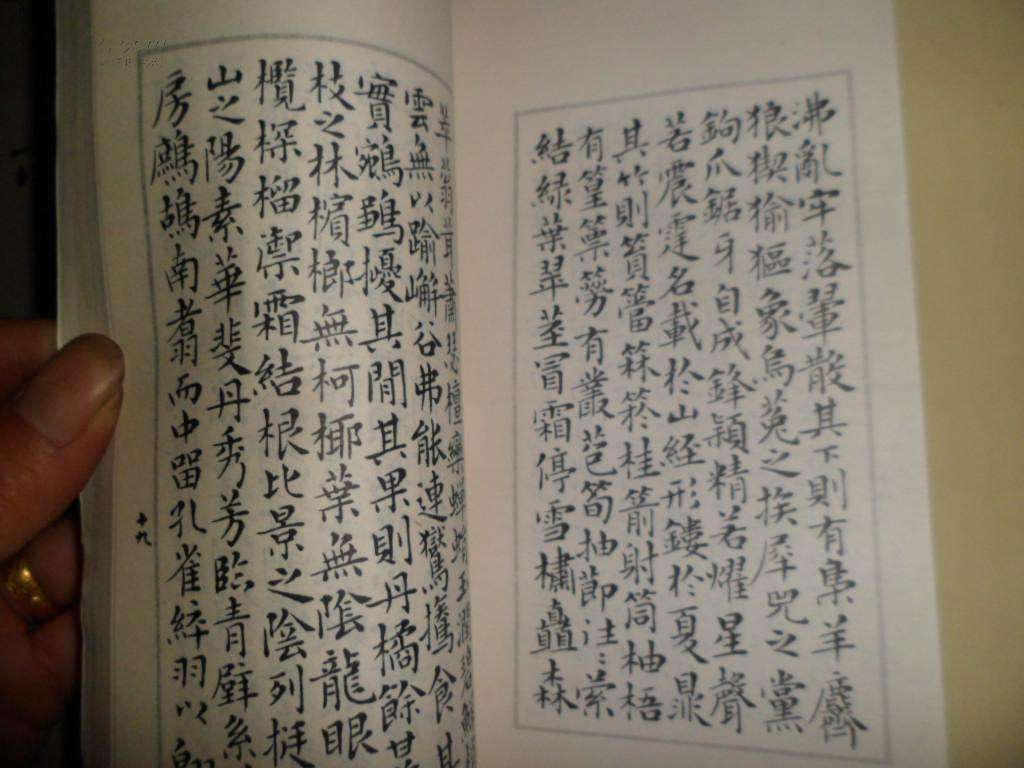 沸亂牢落翬散其下則有梟羊麡
狼猰㺄貙象烏菟之族犀兕之黨
鉤爪鋸牙自成鋒穎精若耀星聲
若震霆名載於山經形鏤於夏鼎
其竹則篔簹箖箊桂箭射筒柚梧
有篁篻簩有叢苞筍抽節往〻縈
結綠葉翠莖冒霜停雪橚矗森
萃蓊茸蕭瑟檀欒蟬蜎玉潤碧鮮
雲無以踰嶰谷弗能連鸑鷟食其
實鵷鶵擾其閒其果則丹橘餘甘
枝之林檳榔無柯椰葉無陰龍眼
欖探榴禦霜結根比景之陰列挺
山之陽素華斐丹秀芳臨青壁系
房鷓鴣南翥而中留孔雀綷羽以翱
十九